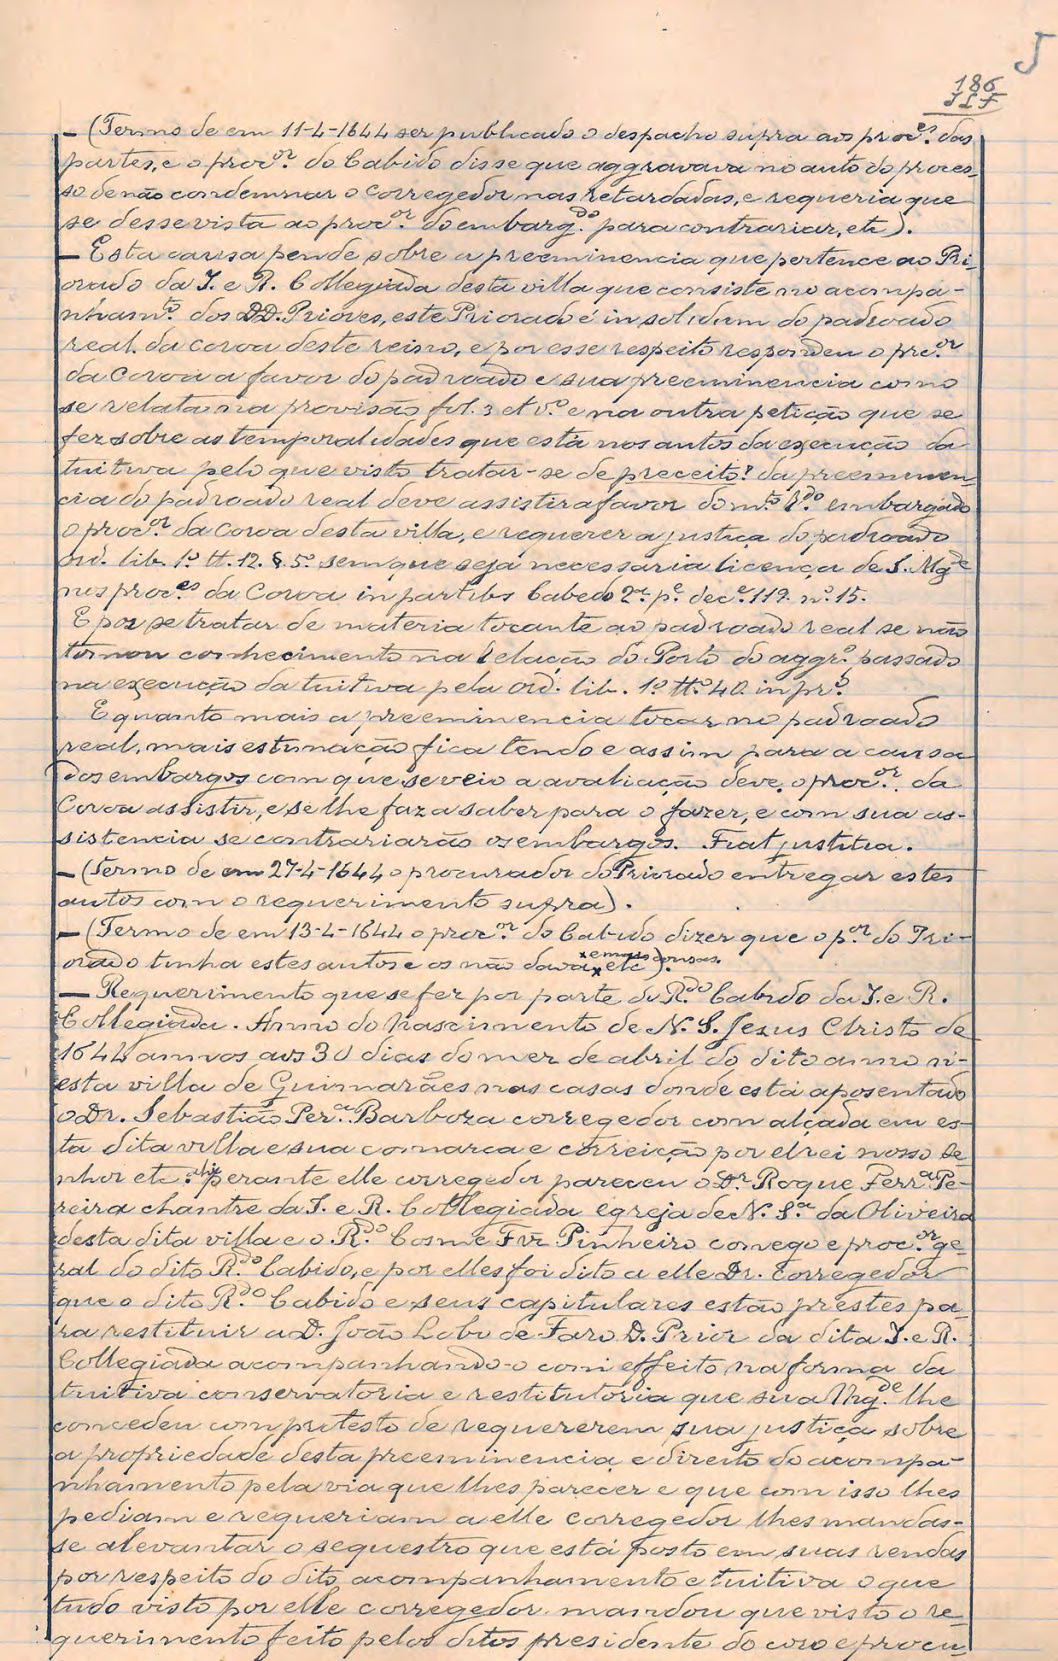 J
186
JLF
— (Termo de em 11-4-1644 ser publicado o despacho supra aos proc.es das
partes, e o proc.or do Cabido disse que aggravava no auto do proces-
so de não condemnar o corregedor nas retardadas, e requeria que
se desse vista ao proc.or do embarg.do para contrariar, etc).
— Esta causa pende sobre a preeminencia que pertence ao Pri-
orado da I. e R. Collegiada desta villa que consiste no acompa-
nham.to dos DD. Priores, este Priorado é in solidum do padroado
real da coroa deste reino, e por esse respeito respondeu o pro.or
da Coroa a favor do padroado e sua preeminencia como
se relata na provisão fol. 3 et v.o e na outra petição que se
fez sobre as temporalidades que está nos autos da execução da
tuitiva pelo que visto tratar-se de preceito? da preeminen-
cia do padroado real deve assistir a favor do m.to R.do embargado
o proc.or da Coroa desta villa, e requerer a justiça do padroado
ord. lib. 1.o tt. 12. §. 5.o sem que seja necessaria licença de S. Mg.de
nos proc.es da Coroa in partibs Cabedo 2.a p.e dec.e 119. n.o 15.
E por se tratar de materia tocante ao padroado real se não
tomou conhecimento na Relação do Porto do aggr.o passado
na execução da tuitiva pela ord. lib. 1.o tt.o 40. in pr.o
E quanto mais a preeminencia tocar no padroado
real, mais estimação fica tendo e assim para a causa
dos embargos com que se veio a avaliação deve o proc.or da
Coroa assistir, e se lhe faz a saber para o fazer, e com sua as-
sistencia se contrariarão os embargos. Fiat justitia.
— (Termo de em 27-4-1644 o procurador do Priorado entregar estes
autos com o requerimento supra).
— (Termo de em 13-4-1644 o proc.or do Cabido dizer que o p.or do Pri-
orado tinha estes autos e os não dava × e mais cousas. × etc).
— Requerimento que se fez por parte do R.do Cabido da I. e R.
Collegiada. Anno do Nascimento de N. S. Jezus Christo de
1644 annos aos 30 dias do mez de abril do dito anno n-
esta villa de Guimarães nas casas donde está aposentado
o Dr. Sebastião Per.a Barboza corregedor com alçada em es-
ta dita villa e sua comarca e correição por elrei nosso Se-
nhor etc. ahi perante elle corregedor pareceu o Dr. Roque Ferr.a Pe-
reira chantre da I. e R. Collegiada egreja de N. S.a da Oliveira
desta dita villa e o R.do Cosme Frz Pinheiro conego e proc.or ge-
ral do dito R.do Cabido, e por elles foi dito a elle Dr. Corregedor
que o dito R.do Cabido e seus capitulares estão prestes pa-
ra restituir a D. João Lobo de Faro D. Prior da dita I. e R.
Collegiada acompanhando-o com effeito na forma da
tuitiva conservatoria e restitutoria que sua Mg.de lhe
concedeu com protesto de requererem sua justiça sobre
a propriedade desta preeminencia e direito do acompa-
nhamento pela via que lhes parecer e que com isso lhes
pediam e requeriam a elle corregedor lhes mandas-
se alevantar o sequestro que está posto em suas rendas
por respeito do dito acompanhamento e tuitiva o que
tudo visto por elle corregedor mandou que visto o re-
querimento feito pelos ditos presidente do coro e procu-